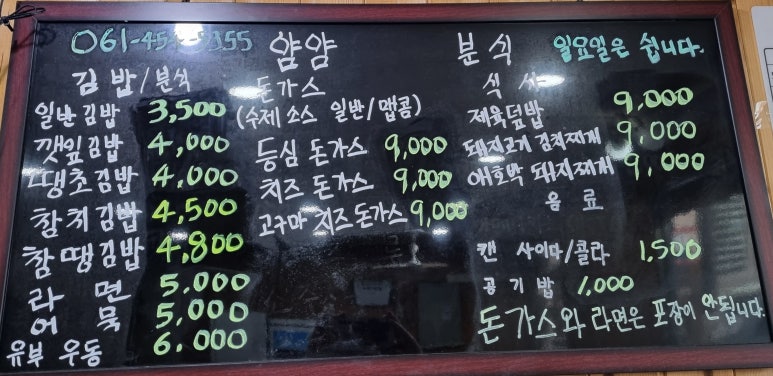 얌얌 분식 일요일은 쉽니다.
김밥/분식
일반김밥 3,500
깻잎김밥 4,000
땡초김밥 4,000
참치김밥 4,500
참땡김밥 4,800
라면 5,000
어묵 5,000
유부우동 6,000
돈가스
(수제소스 일반/맵콤)
등심 돈가스 9,000
치즈 돈가스 9,000
고구마 치즈돈가스 9,000
식사
제육덮밥 9,000
돼지고기 김치찌개 9,000
애호박 돼지찌개 9,000
음료
캔 사이다/콜라 1,500
공기밥 1,000
돈가스와 라면은 포장이 안됩니다.